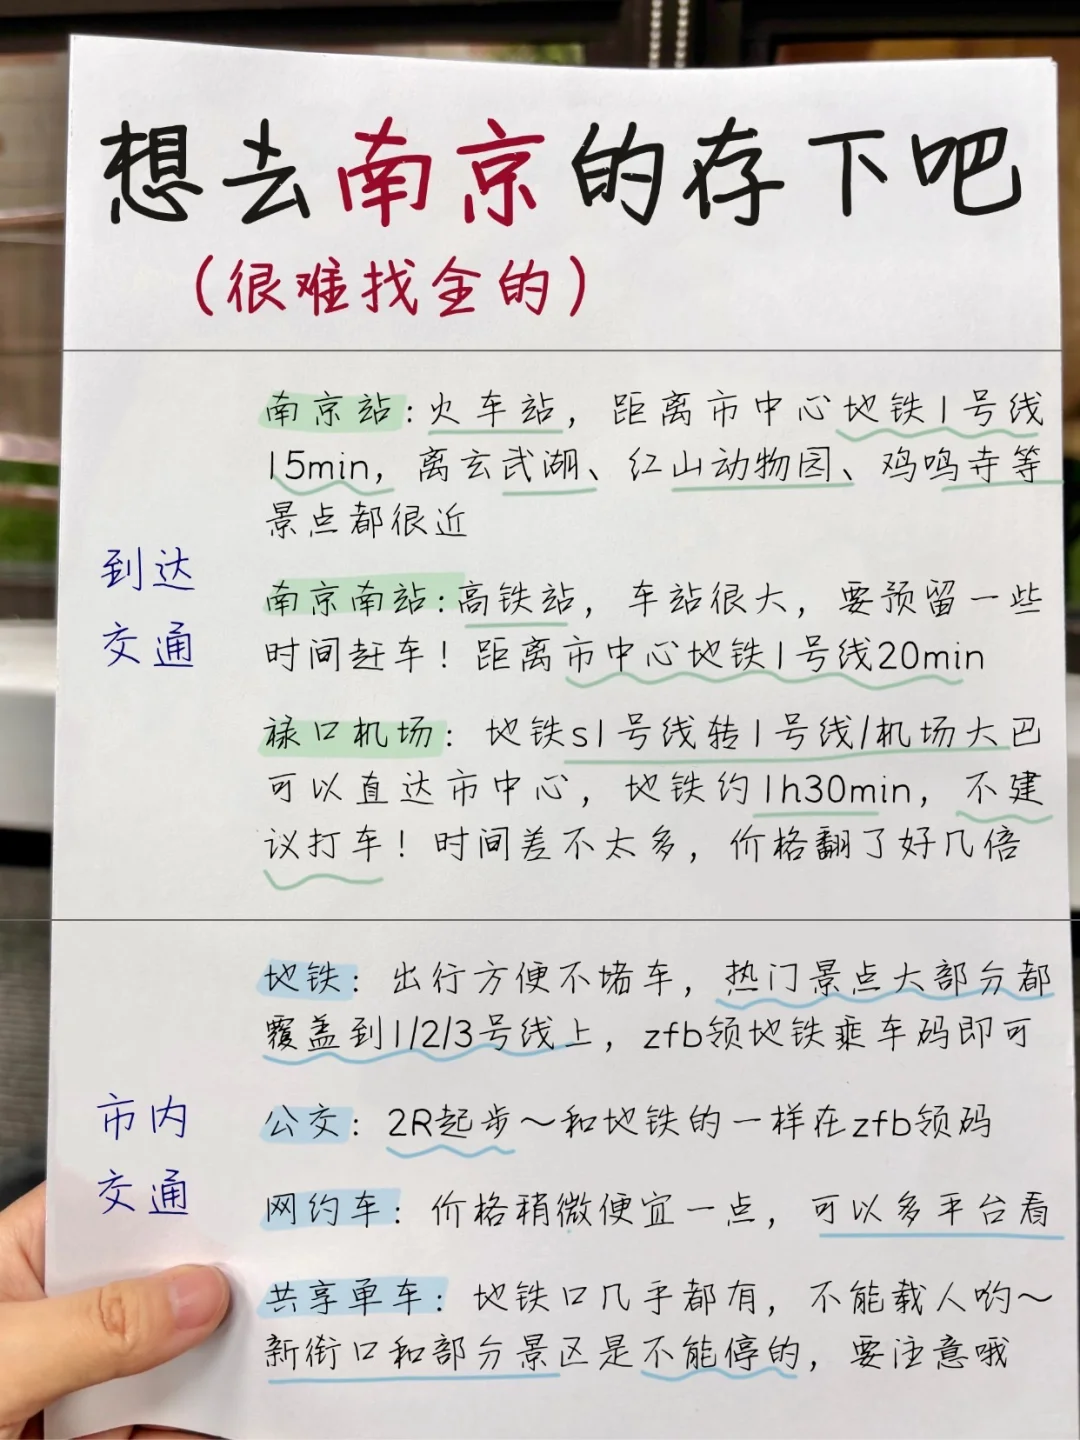 想去南京的存下吧
(很难找全的)
南京站：火车站，距离市中心地铁1号线
15min，离玄武湖、红山动物园、鸡鸣寺等
景点都很近
到达
交通
南京南站：高铁站，车站很大，要预留一些
时间赶车！距离市中心地铁1号线20min
禄口机场：地铁s1号线转1号线/机场大巴
可以直达市中心，地铁约1h30min，不建
议打车！时间差不太多，价格翻了好几倍
地铁：出行方便不堵车，热门景点大部分都
覆盖到1/2/3号线上，zfb领地铁乘车码即可
市内
交通
公交：2R起步～和地铁的一样在zfb领码
网约车：价格稍微便宜一点，可以多平台看
共享单车：地铁口几乎都有，不能载人哟～
新街口和部分景区是不能停的，要注意哦